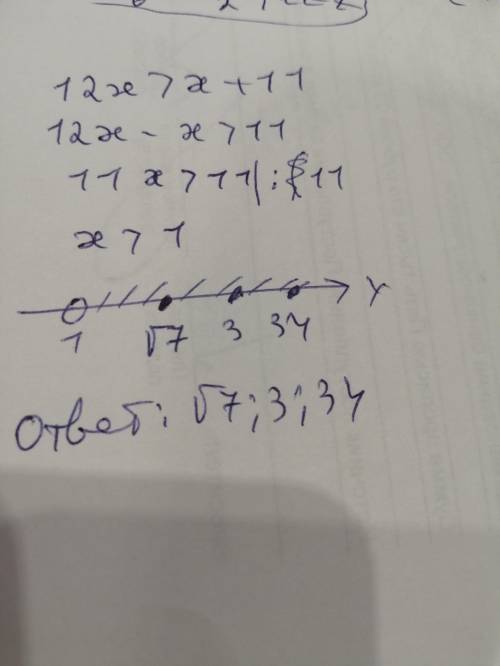 12x > x + 11
12x - x > 11
11 x > 11 | : 11
x > 1
1 √7 3 34 x
Ответ: √7; 3; 34